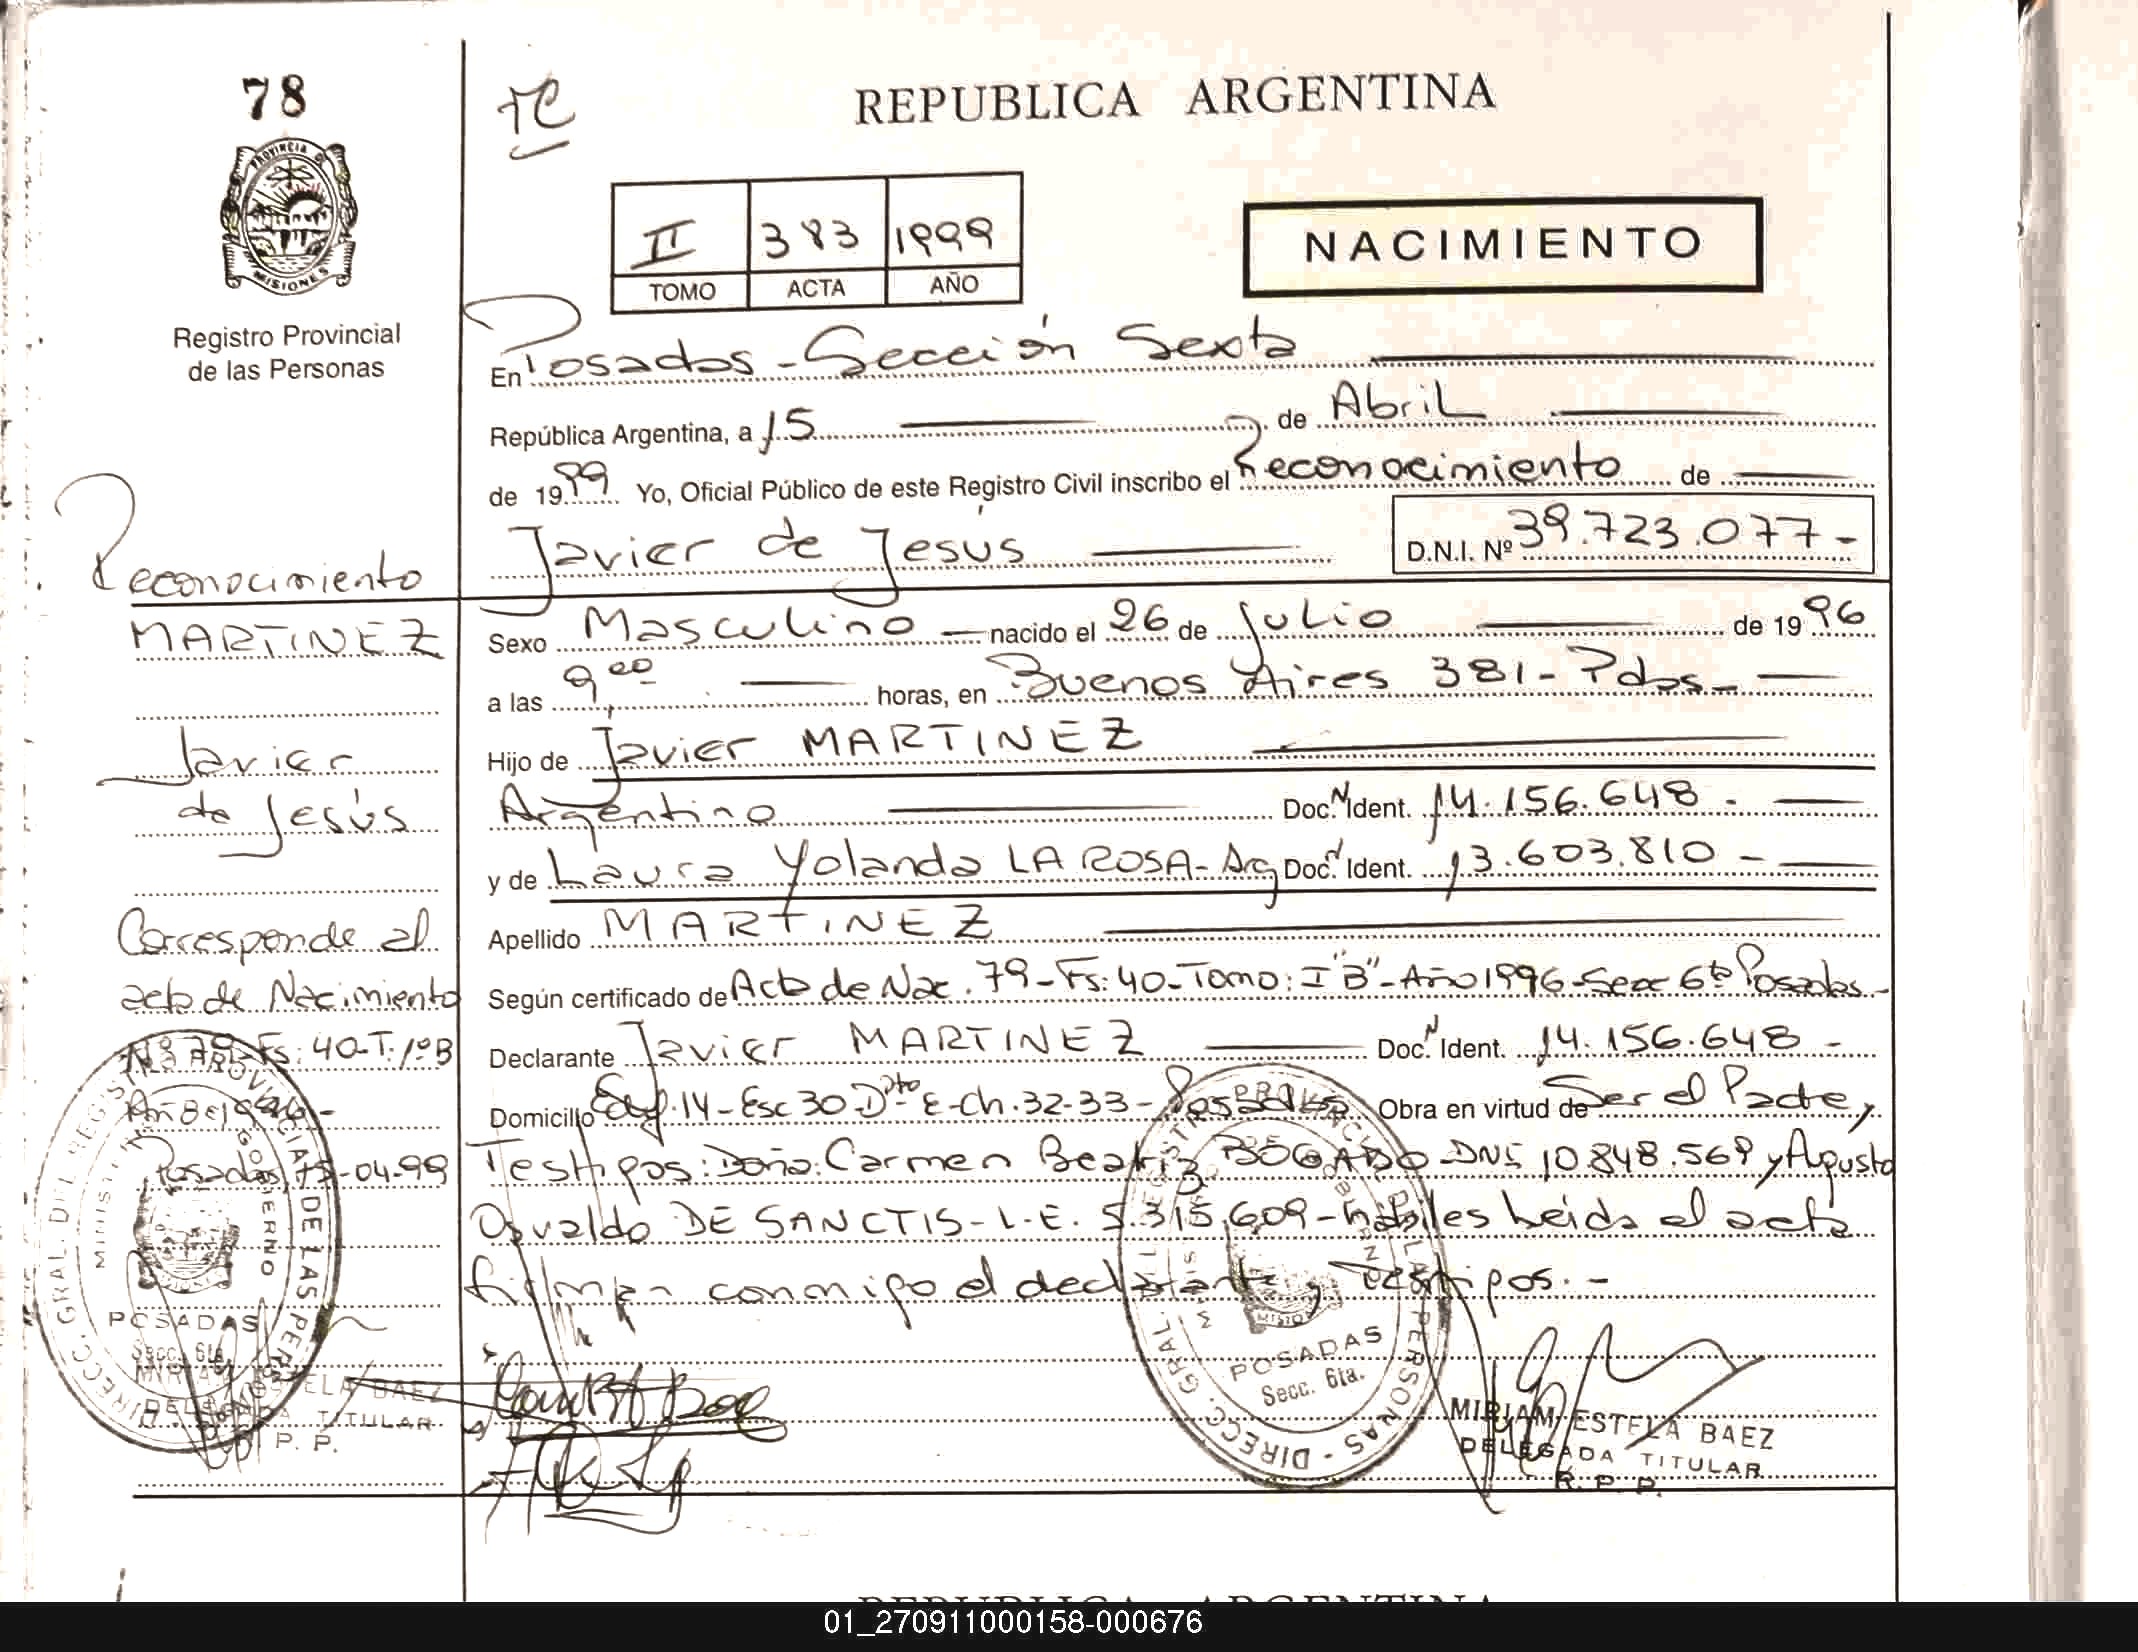 78
PROVINCIA DE
MISIONES
Registro Provincial
de las Personas
Reconocimiento
MARTINEZ
Javier
de Jesús
Corresponde al
acta de Nacimiento
Nº 79 Fs: 40-T: 1º B
Posadas, 15-04-99
DIRECC. GRAL. DEL REGISTRO PROVINCIAL DE LAS PERSONAS
GOBIERNO
POSADAS
Secc. 6ta.
MIRIAM ESTELA BAEZ
DELEGADA TITULAR
R. P. P.
TC
REPUBLICA ARGENTINA
II 383 1999
TOMO ACTA AÑO
NACIMIENTO
En Posadas - Sección Sexta
República Argentina, a 15 de Abril
de 1999 Yo, Oficial Público de este Registro Civil inscribo el Reconocimiento de
Javier de Jesús D.N.I. Nº 39.723.077-
Sexo Masculino nacido el 26 de Julio de 1996
a las 9,00 horas, en Buenos Aires 381- Pdas-
Hijo de Javier MARTINEZ
Argentino Doc. N Ident. 14.156.648-
y de Laura Yolanda LA ROSA- Arg Doc. N Ident. 13.603.810-
Apellido MARTINEZ
Según certificado de Acta de Nac. 79-Fs: 40-Tomo: I "B"-Año 1996-Secc 6ta Posadas-
Declarante Javier MARTINEZ Doc. N Ident. 14.156.648-
Domicilio 14-Esc 30 Dpto E-Ch. 32-33-Posadas Obra en virtud de Ser el Padre,
Testigos: Doña: Carmen Beatriz BOGADO-DNI 10.848.569 y Agusto
Osvaldo DE SANCTIS-L.E. 5.315.609-hábiles Leida el acta
firman conmigo el declarante y Testigos.-
DIRECC. GRAL. DEL REGISTRO PROVINCIAL DE LAS PERSONAS
POSADAS
Secc. 6ta.
MIRIAM ESTELA BAEZ
DELEGADA TITULAR
R. P. P.
REPUBLICA ARGENTINA
01_270911000158-000676